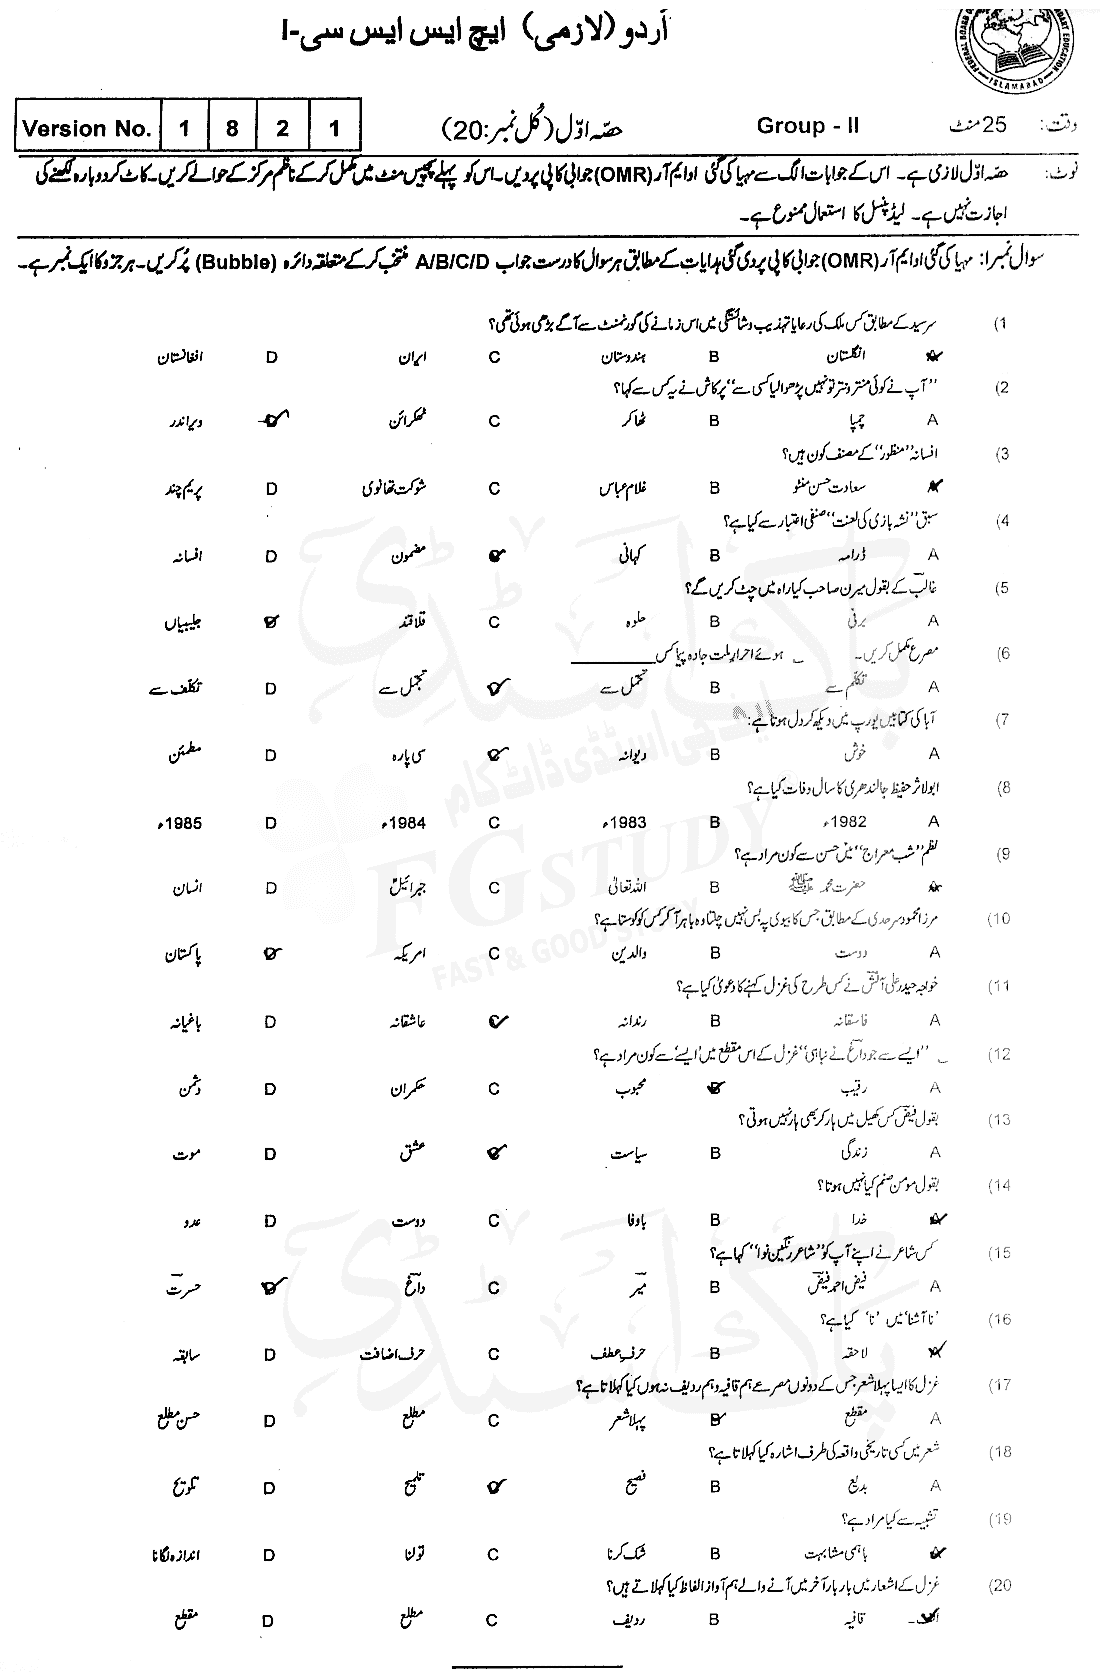 اُردو (لازمی) ایچ ایس ایس سی-I
FEDERAL BOARD OF EDUCATION ISLAMABAD
وقت: 25 منٹ Group - II حصّہ اوّل (کُل نمبر: 20) Version No. 1 8 2 1
نوٹ: حصّہ اوّل لازمی ہے۔ اس کے جوابات الگ سے مہیا کی گئی او ایم آر (OMR) جوابی کاپی پر دیں۔ اس کو پہلے پچیس منٹ میں مکمل کر کے ناظم مرکز کے حوالے کریں۔ کاٹ کر دوبارہ لکھنے کی
اجازت نہیں ہے۔ لیڈ پنسل کا استعمال ممنوع ہے۔
سوال نمبر ۱: مہیا کی گئی او ایم آر (OMR) جوابی کاپی پر دی گئی ہدایات کے مطابق ہر سوال کا درست جواب A/B/C/D منتخب کر کے متعلقہ دائرہ (Bubble) پُر کریں۔ ہر جزو کا ایک نمبر ہے۔
(1 سرسید کے مطابق کس ملک کی رعایا تہذیب و شائستگی میں اس زمانے کی گورنمنٹ سے آگے بڑھی ہوئی تھی؟
A انگلستان B ہندوستان C ایران D افغانستان
(2 "آپ نے کوئی منتر ونتر تو نہیں پڑھوا لیا کسی سے" پرکاش نے یہ کس سے کہا؟
A چمپا B ٹھاکر C ٹھکرائن D ویراندر
(3 افسانہ "منظور" کے مصنف کون ہیں؟
A سعادت حسن منٹو B غلام عباس C شوکت تھانوی D پریم چند
(4 سبق "نشہ بازی کی لعنت" صنفی اعتبار سے کیا ہے؟
A ڈرامہ B کہانی C مضمون D افسانہ
(5 غالبؔ کے بقول میرن صاحب کیا راہ میں چٹ کریں گے؟
A برفی B حلوہ C قلاقند D جلیبیاں
(6 مصرع مکمل کریں۔ ہوئے احرارِ ملت جادہ پیما کس ________
A تکلّم سے B تحمل سے C تجمل سے D تکلف سے
(7 آبا کی کتابیں یورپ میں دیکھ کر دل ہوتا ہے:
A خوش B دیوانہ C سی پارہ D مطمئن
(8 ابوالاثر حفیظ جالندھری کا سال وفات کیا ہے؟
A 1982ء B 1983ء C 1984ء D 1985ء
(9 نظم "شب معراج" میں حسن سے کون مراد ہے؟
A حضرت محمد ﷺ B اللہ تعالیٰ C جبرائیلؑ D انسان
(10 مرزا محمود سرحدی کے مطابق جس کا بیوی پہ بس نہیں چلتا وہ باہر آ کر کس کو کوستا ہے؟
A دوست B والدین C امریکہ D پاکستان
(11 خواجہ حیدر علی آتشؔ نے کس طرح کی غزل کہنے کا دعویٰ کیا ہے؟
A فاسقانہ B رندانہ C عاشقانہ D باغیانہ
(12 "ایسے سے جو داغؔ نے نباہی" غزل کے اس مقطع میں 'ایسے' سے کون مراد ہے؟
A رقیب B محبوب C حکمران D دشمن
(13 بقول فیضؔ کس کھیل میں ہار کر بھی ہار نہیں ہوتی؟
A زندگی B سیاست C عشق D موت
(14 بقول مومن صنم کیا نہیں ہوتا؟
A خدا B باوفا C دوست D عدو
(15 کس شاعر نے اپنے آپ کو "شاعر رنگین نوا" کہا ہے؟
A فیض احمد فیضؔ B میرؔ C داغؔ D حسرتؔ
(16 'نا آشنا' میں 'نا' کیا ہے؟
A لاحقہ B حرفِ عطف C حرف اضافت D سابقہ
(17 غزل کا ایسا پہلا شعر جس کے دونوں مصرعے ہم قافیہ و ہم ردیف نہ ہوں کیا کہلاتا ہے؟
A مقطع B پہلا شعر C مطلع D حسن مطلع
(18 شعر میں کسی تاریخی واقعہ کی طرف اشارہ کیا کہلاتا ہے؟
A بدیع B فصیح C تلمیح D تلویح
(19 تشبیہ سے کیا مراد ہے؟
A باہمی مشابہت B شک کرنا C تولنا D اندازہ لگانا
(20 غزل کے اشعار میں بار بار آخر میں آنے والے ہم آواز الفاظ کیا کہلاتے ہیں؟
قافیہ B ردیف C مطلع D مقطع
پاک سٹڈی
FG STUDY
FAST & GOOD STUDY
پاک سٹڈی